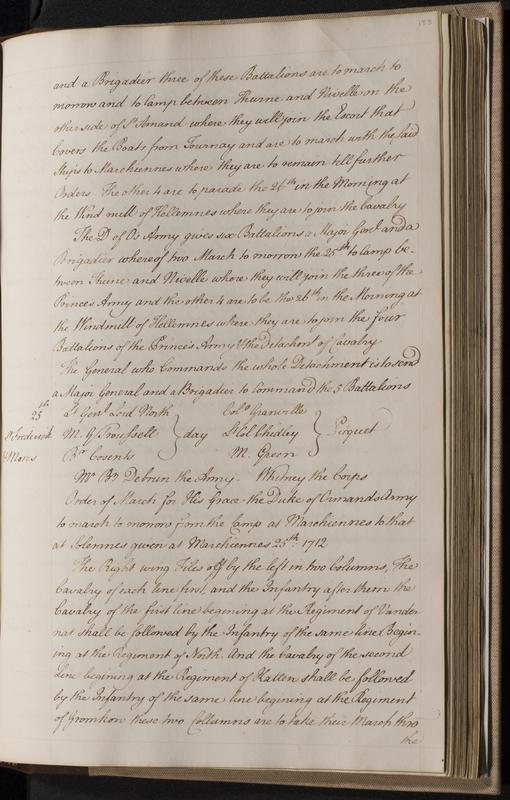 133
and a Brigadier three of these Battalions are to march to
morrow and to Camp between Thurne and Nivelle on the
other side of St Amand where they will join the Escort that
Covers the Boats from Tournay and are to march with the said
Ships to Marchiennes where they are to remain till further
Orders. The other 4 are to parade the 26th in the Morning at
the Wind mill of Hellemnes where they are to join the Cavalry
The D of Os Army gives six Battalions a Major Genl and a
Brigadier whereof two March to morrow the 25th to Camp be-
tween Thurne and Nivelle where they will join the three of the
Princes Army and the other 4 are to be the 26th in the Morning at
the Windmill of Hellemnes where they are to join the four
Battalions of the Princes Army & the Detachmt of Cavalry
The General who Commands the whole Detachment is to send
a Major General and a Brigadier to Command the 5 Battalions
25 Lt Genl Lord North Colo Granville
M. G. Troussell day Lt Col Chidley Picquet
Mons Br Cosents M. Green
Mr Br Debrun the Army. Whitney the Corps
Order of March for His Grace the Duke of Ormands Army
to march to morrow from the Camp at Marchiennes to that
at Solemnes given at Marchiennes 25th 1712
The Right wing Files off by the left in two Columns, The
Cavalry of each line first, and the Infantry after them the
Cavalry of the first line begening at the Regiment of Vander
nat shall be followed by the Infantry of the same line Begin-
ing at the Regiment of North. And the Cavalry of the second
Line begening at the Regiment of Hatten shall be followed
by the Infantry of the same line begening at the Regiment
of Gromkow these two Collumns are to take their March thro
the